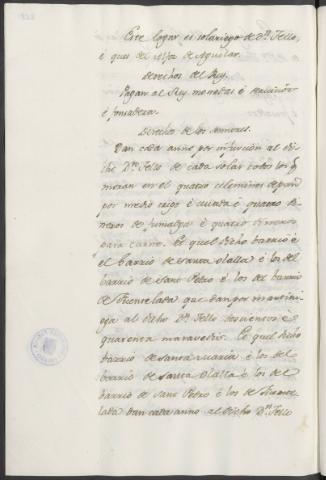 Este logar es solariego de Dn. Tello,
é que es del Alfoz de Aguilar.
derechos del Rey.
Pagan al Rey monedas é servicios
é fonsadera.
Derechos de los señores.
Dan cada anno por infurcion al di-
cho Dn. Tello de cada solar todos los q.
moran en el quatro celemines de pan
por medio trigo é cevada é quatro di-
neros de fumalga é quatro dineros
para carne. E quel dicho barrio é
el barrio de Santa Olalla é los del
barrio de Sant Pedro é los del barrio
de Fuenelada que dan por martini-
ega al dicho Dn. Tello doscientos é
quarenta maravedis. E quel dicho
barrio de Santa Maria é los del
barrio de Santa Olalla é los del
barrio de Sant Pedro é los de Fuene-
lada dan cada anno al dicho Dn. Tello